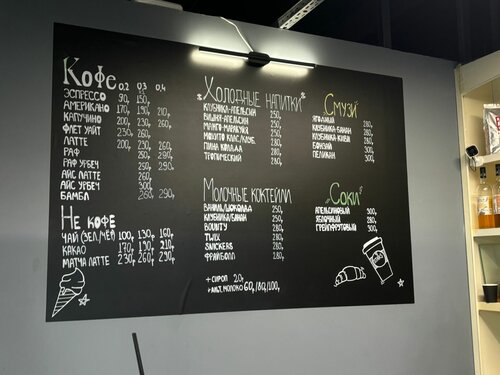 Кофе 0,2 0,3 0,4
эспрессо 90, 150,
американо 170, 190, 210,
капучино 200, 230, 260,
флет уайт 230, 260,
латте 200, 230, 260,
раф 250, 290,
раф урбеч 250, 290,
айс латте 260,
айс урбеч 300,
бамбл 250, 290,
Не кофе
чай (зел/чёр) 100, 130, 160,
какао 170, 190, 210,
матча латте 230, 260, 290,
Холодные напитки
клубника-апельсин 250,
вишня-апельсин 250,
манго-маракуйя 280,
мохито клас/клуб. 280,
пина колада 280,
тропический 280,
Молочные коктейли
ваниль/шоколад 250,
клубника/банан 250,
Bounty 280,
Twix 280,
Snickers 280,
фрайболл 280,
+ сироп 20р
+ альт. молоко 60,/80,/100,
Смузи
ягодный 280,
клубника-банан 280,
клубника-киви 280,
бонзай 300,
пеликан 300,
Соки
апельсиновый 300,
яблочный 280,
грейпфрутовый 300,